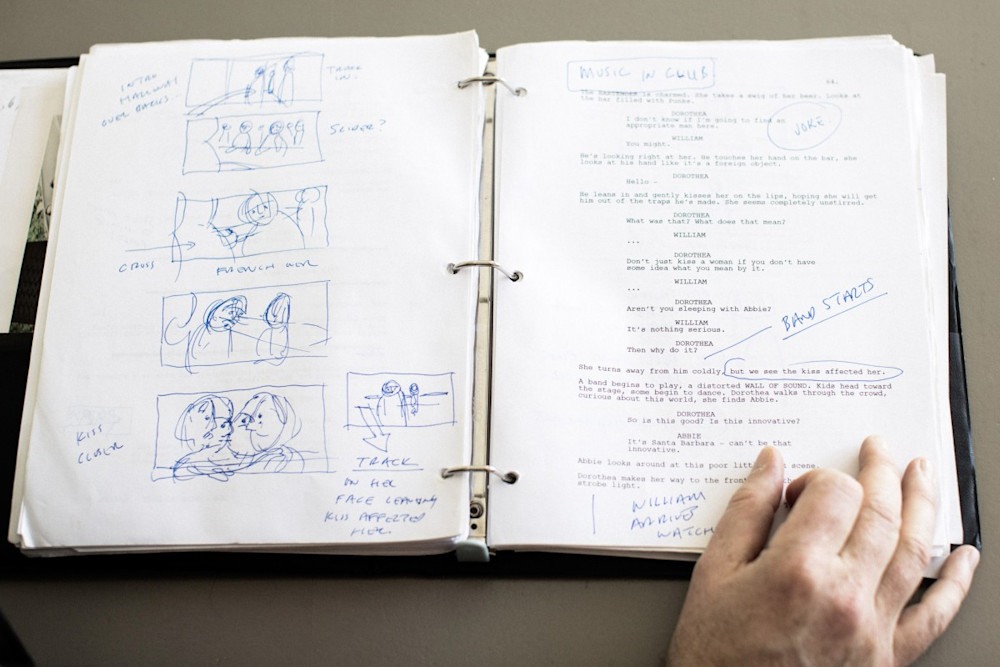 INTRO
HALLWAY
OVER BARNS.
TRACK
IN.
SLIDER?
CROSS
FRENCH OVER
KISS
CLOSER
TRACK
ON HER
FACE LEAVING
KISS AFFECTED
HER.
MUSIC IN CLUB
94.
The BARTENDER is charmed. She takes a swig of her beer. Looks at
the bar filled with Punks.
DOROTHEA
I don't know if I'm going to find an
appropriate man here.
JOKE
WILLIAM
You might.
He's looking right at her. He touches her hand on the bar, she
looks at his hand like it's a foreign object.
DOROTHEA
Hello -
He leans in and gently kisses her on the lips, hoping she will get
him out of the traps he's made. She seems completely unstirred.
DOROTHEA
What was that? What does that mean?
WILLIAM
...
DOROTHEA
Don't just kiss a woman if you don't have
some idea what you mean by it.
WILLIAM
...
DOROTHEA
Aren't you sleeping with Abbie?
WILLIAM
It's nothing serious.
DOROTHEA
Then why do it?
BAND STARTS
She turns away from him coldly, but we see the kiss affected her.
A band begins to play, a distorted WALL OF SOUND. Kids head toward
the stage, some begin to dance. Dorothea walks through the crowd,
curious about this world, she finds Abbie.
DOROTHEA
So is this good? Is this innovative?
ABBIE
It's Santa Barbara - can't be that
innovative.
Abbie looks around at this poor scene.
Dorothea makes her way to the
strobe light.
WILLIAM
ARRIVES
WATCH